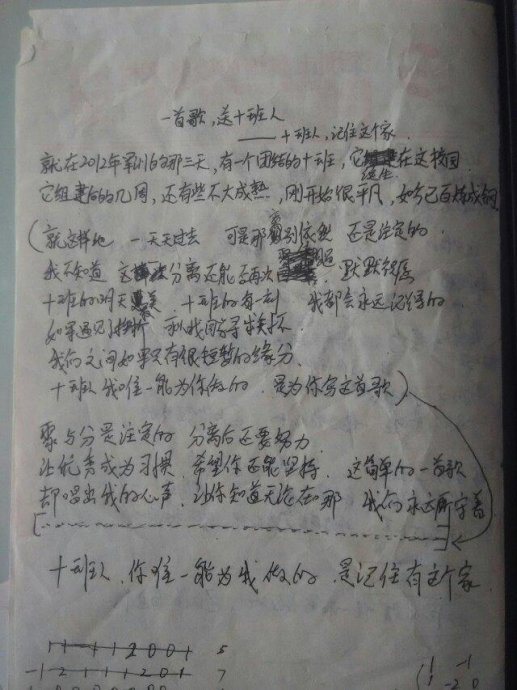 一首歌,送十班人
——十班人,记住这个家
就在2012年军训的那三天,有一个团结的十班,它在这校园
诞生
它组建后的几周,还有些不大成熟,刚开始很平凡,如今已百炼成钢
(就这样地 一天天过去 可是那离别依然 还是注定的.
我不知道 这次分离还能否再次相遇. 默默祝愿
十班的明天 十班的每一刻 我都会永远记得的
如果遇见挫折 和我同学寻求关怀
我们之间如果只有很短暂的缘分.
十班人 我唯一能为你做的 是为你写这首歌)
聚与分是注定的 分离后还要努力
让优秀成为习惯. 希望你还能坚持. 这简单的一首歌
却唱出我的心声. 让你知道无论在哪 我们永远所守着
[ ]
十班人,你唯一能为我做的 是记住有这个家.
1 1 1 1 2 0 0 1 5
-1 2 1 1 1 1 2 0 1 7